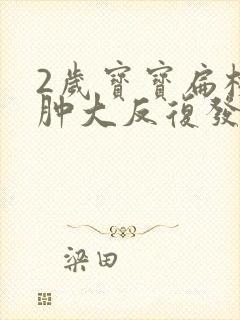 2歲寶寶扁桃
肿大反復發
梁田